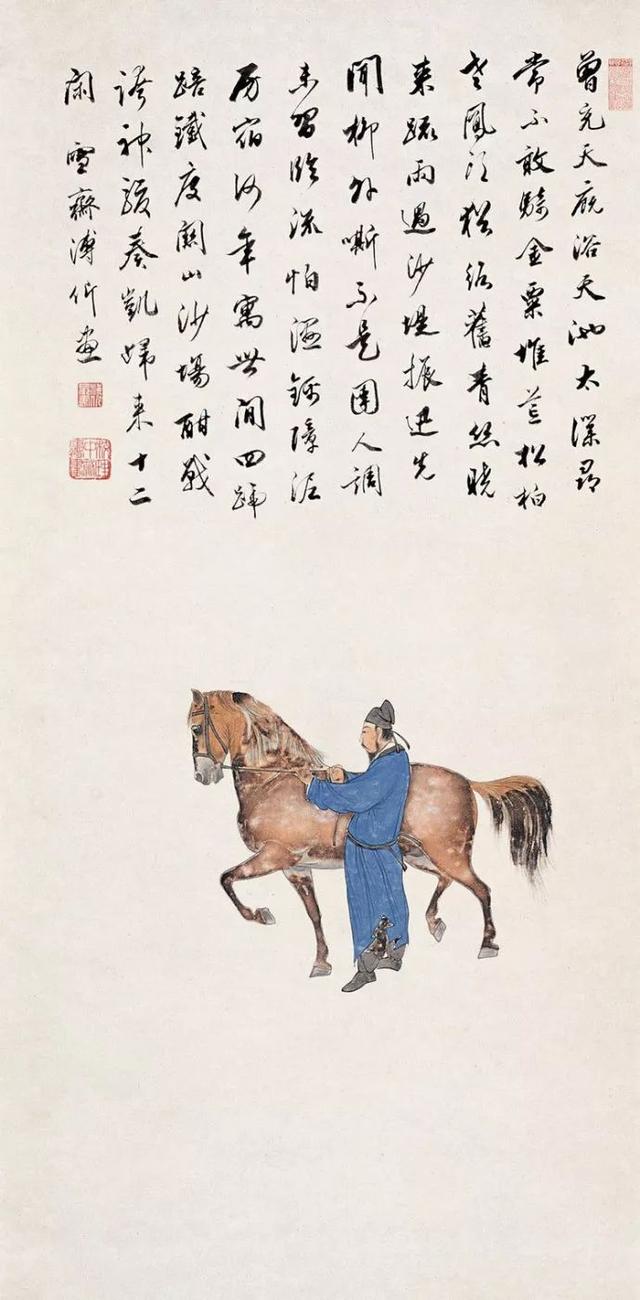 曾充天厩浴天池太僕尋
常不敢騎金粟堆荒松柏
老鳳頭猶絡舊青絲曉
來疏雨過沙堤振迅先
聞柳外嘶不是圉人調
未習臨流怕濕錦障泥
房宿何年寓世間四蹄
踣鐵度關山沙場酣戰
誇神駿奏凱歸來十二
閑 雪齋溥伒畫